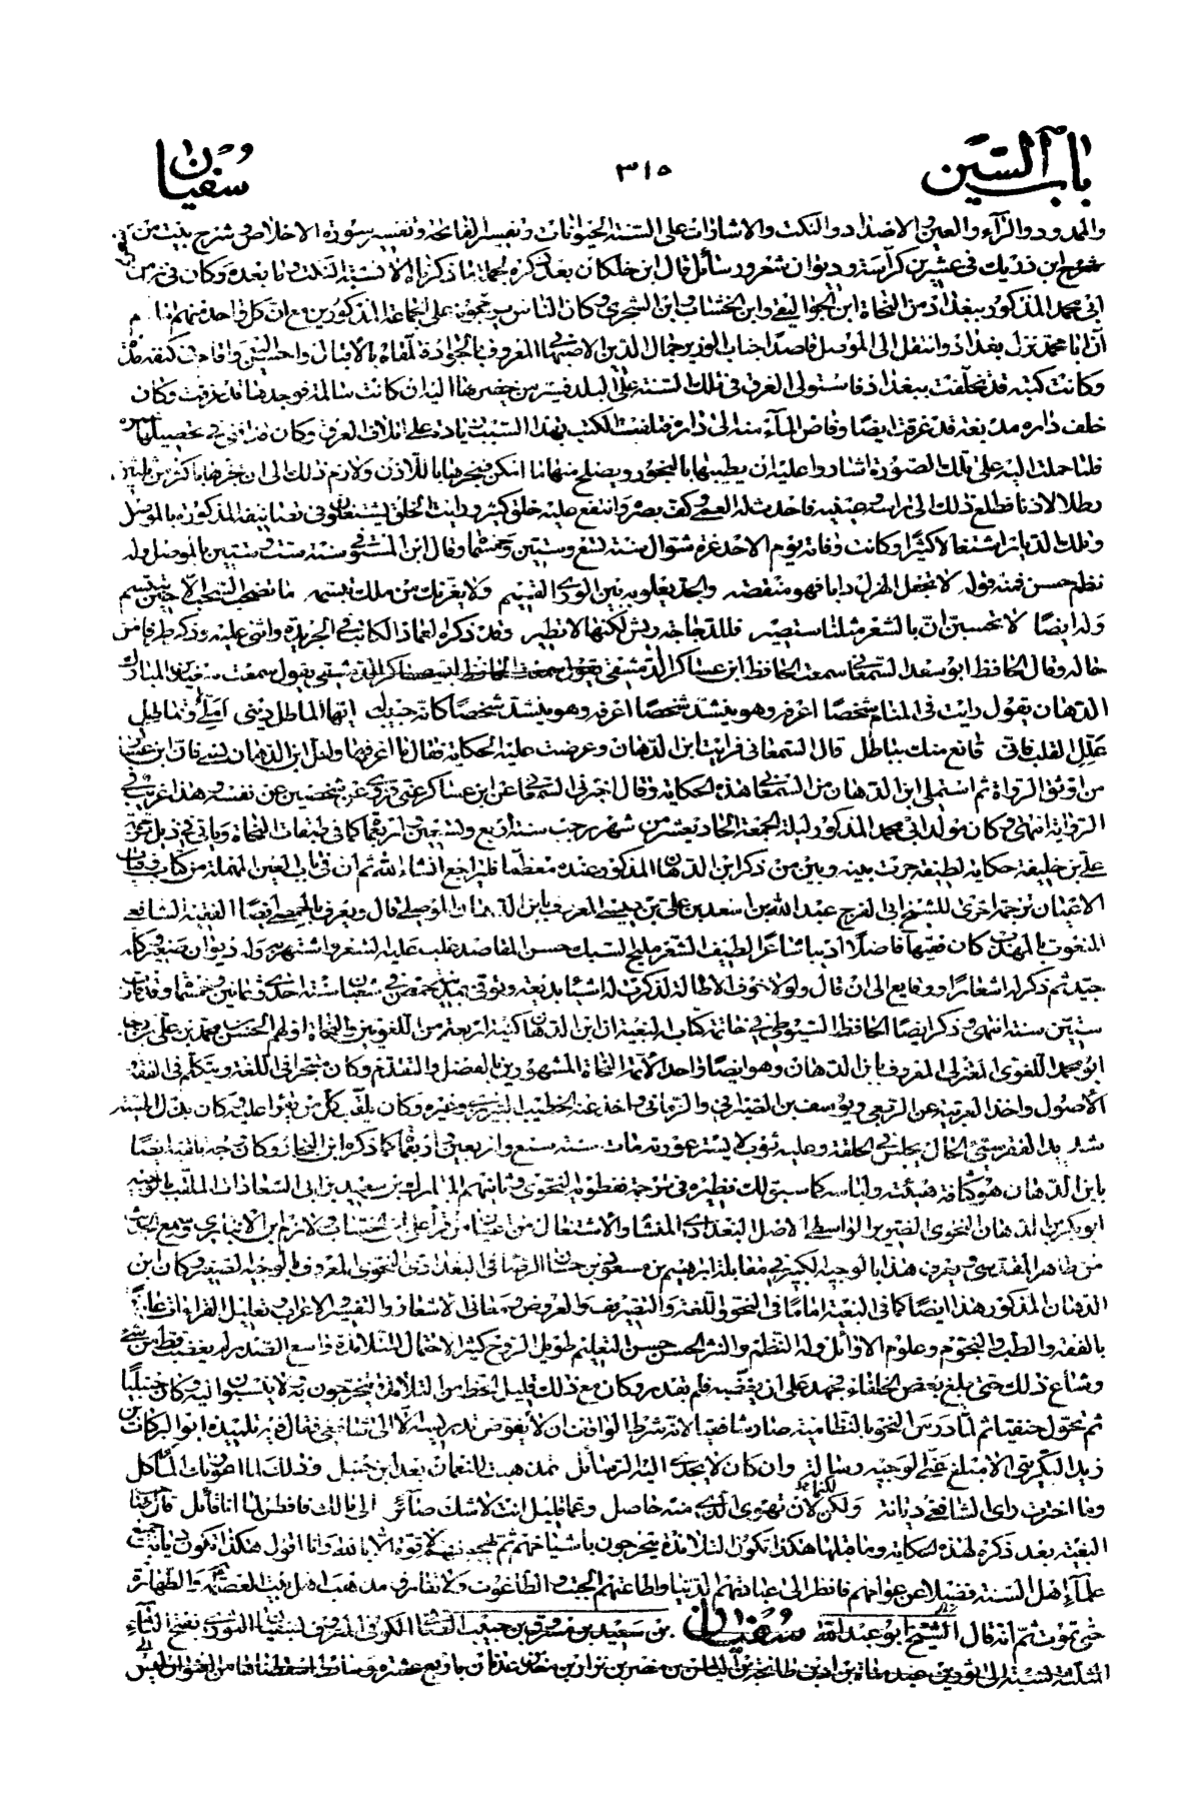 باب السين
٣١٥
سفيان
والممدود والرآء والعين والاضداد والنكت والاشارات على السنة الحيوانات وتفسير الفاتحة وتفسير سورة الاخلاص وشرح بيت من
ابن رزيك في عشرين كرّاسة وديوان شعر ورسائل قال ابن خلكان بعد ذكره لجملة ما ذكرناه وكان في زمن
ابي محمد المذكور ببغداد من النحاة ابن الجواليقي وابن الخشاب وابن الشجري وكان الناس يرجحونه على الجماعة المذكورين مع ان كل واحد منهم
ان ابا محمد ترك بغداد وانتقل الى الموصل قاصدا جناب الوزير جمال الدين الاصبهاني المعروف بالجواد فتلقاه بالاقبال واحسن اليه واقام في كنفه مدة
وكانت كتبه قد تخلّفت ببغداد فاستولى الغرق في تلك السنة على البلد فسيّر من يحضرها اليه ان كانت سالمة فوجدها قد غرقت وكان
خلف داره مدبغة قد غرقت ايضًا وفاض المآء منه الى داره فتلفت الكتب بهذا السبب زيادة على اتلاف الغرق وكان في تحصيلها
فلما حملت اليه على تلك الصورة اشاروا عليه ان يطيبها بالبخور ويصلح منها ما امكن فبخرها باللّاذن ولازم ذلك الى ان بخرها باكثر من ثلثين
رطلا لاذنا فطلع ذلك الى راسه وعينيه فاحدث له العمى وكف بصره وانتفع عليه خلق كثير ورايت الخلق يشتغلون في تصانيفه المذكورة بالموصل
وتلك الديار اشتغالا كثيرًا وكانت وفاته يوم الاحد غرة شوال سنة تسع وستين وخمسمائة وقال ابن المستوفي سنة ست وستين بالموصل وله
نظم حسن فمنه قوله لا تجعل الهزل دابا فهو منقصة والجد يعلو به بين الورى القيم ولا يغرّنك من ملك تبسمه ما تصخب السحب الّا حين تبتسم
وله ايضًا لا تحسبن ان بالشعر مثلنا ستصير فللدجاجة ريش لكنها لا تطير وقد ذكره العماد الكاتب في الخريدة واثنى عليه وذكر طرفا من
حاله وقال الحافظ ابو سعد السمعاني سمعت الحافظ ابن عساكر الدمشقي يقول سمعت سعيد بن المبارك
الدهان يقول رايت في المنام شخصا اعرفه وهو ينشد شخصًا كانه حبيبًا له ايها الماطل ديني املئ وتماطل
علّل القلب فاني قانع منك بباطل قال السمعاني فرايت ابن الدهان وعرضت عليه الحكاية فقال ما اعرفها ولعل ابن الدهان نسي فان ابن عساكر
من اوثق الرواة ثم استملى ابن الدهان من السمعاني هذه الحكاية وقال اخبرني السمعاني عن ابن عساكر عني فروى عن شخصين عن نفسه وهذا غريب في
الرواية انتهى وكان مولد ابي محمد المذكور ليلة الجمعة الحادية عشر من شهر رجب سنة اربع وتسعين واربعمائة كما في طبقات النحاة وياتي في ذيل ترجمة
علي بن خليفة حكاية لطيفة جرت بينه وبين من ذكر ابن الدهان المذكور عنده معظما فليراجع انشاء الله ثم ان في باب العين المهملة من كتاب وفيات
الاعيان ترجمة اخرى للشيخ ابي الفرج عبد الله بن اسعد بن علي بن عيسى المعروف بابن الدهان الموصلي قال ويعرف بالحمصي ايضًا الفقيه الشافعي
المنعوت بالمهذب كان فقيها فاضلًا اديبا شاعرًا لطيف الشعر مليح السبك حسن المقاصد غلب عليه الشعر واشتهر به وله ديوان صغير وكله
جيّد ثم ذكر له اشعارًا ووقايع الى ان قال ولولا خوف الاطالة لذكرت له اشياء بديعة وتوفي بمدينة حمص في شعبان سنة احدى وثمانين وخمسمائة وقد قارب
ستين سنة انتهى وذكر ايضًا الحافظ السيوطي في خاتمة كتاب البغية ان ابن الدهان كنية اربعة من اللغويين والنحاة اولهم الحسن بن محمد بن علي بن رجا
ابو محمد اللغوي المعتزلي المعروف بابن الدهان وهو ايضًا واحد الائمة النحاة المشهورين بالفضل والتقدم وكان متبحرا في اللغة ويتكلم في الفقه
الأصول واخذ العربية عن الربعي ويوسف بن السيرافي والرماني واخذ عنه الخطيب التبريزي وغيره وكان يلقب كل من يقرا عليه وكان
شديد الفقر سيّئ الحال يجلس في الحلقة وعليه ثوب لا يستر عورته مات سنة سبع واربعين واربعمائة كما ذكره ابن النجار وكان جده يلقب ايضًا
بابن الدهان كما سبق لك نظيره في ترجمة نفطويه النحوي وثانيهم المبارك بن سعيد بن ابي السعادات الملقب بالوجيه
ابو بكر بن الدهان النحوي الضرير الواسطي الاصل البغدادي المنشا والاشتغال قرأ على ابن الخشاب ولازم ابن الانباري وسمع الحديث
من طاهر المقدسي ويعرف هذا بالوجيه الكبير في مقابلة ابراهيم بن مسعود بن حسان الرصافي البغدادي النحوي المعروف بالوجيه الصغير وكان ابن
الدهان المذكور هذا ايضًا كما في البغية امامًا في النحو واللغة والتصريف والعروض ومعاني الاشعار والتفسير والاعراب وتعليل القراءات عارفًا
بالفقه والطب والنجوم وعلوم الاوائل وله النظم والنثر الحسن حسن التعليم طويل الروح كثير الاحتمال للتلامذة واسع الصدر لم يغضب قط من شيء
وشاع ذلك حتى بلغ بعض الخلفاء فجهد على ان يغضبه فلم يقدر وكان مع ذلك قليل الحظ من التلامذة يتخرجون به ولا ينسبون اليه وكان حنبليًا
ثم تحول حنفيا ثم لما درس النحو بالنظامية صار شافعيا لانه شرط الواقف ان لا يفوض تدريسه الّا الى شافعي فقال فيه تلميذه ابو البركات بن
زيد التكريتي الا مبلغ عنّي الوجيه رسالة وان كان لا تجدي اليه الرسائل تمذهبت للنعمان بعد ابن حنبل وذلك لما اعوزتك المآكل
وما اخترت راى الشافعي ديانة ولكن لان تهوى الّذي منه حاصل وعما قليل انت لا شك صائر الى مالك فافطن لما انا قائل قال صاحب
البغية بعد ذكره لهذه الحكاية وما قبلها هكذا تكون التلامذة يتخرجون باشياخهم ثم يهجونهم لا قوة الّا بالله وانا اقول هكذا تكون ديانة جميع
علمآء اهل السنة فضلا عن عوامهم فانظر الى عبادتهم الدنيا واطاعتهم الجبت والطاغوت ولا تفارق مذهب اهل بيت العصمة والطهارة
حتى تموت ثم انه قال الشيخ ابو عبد الله سفيان بن سعيد بن مسروق بن حبيب الكوفي المعروف بسفيان الثوري بفتح الثآء
المثلثة نسبته الى ثور بن عبد مناة بن ادّ بن طابخة بن الياس بن مضر بن نزار بن معد بن عدنان